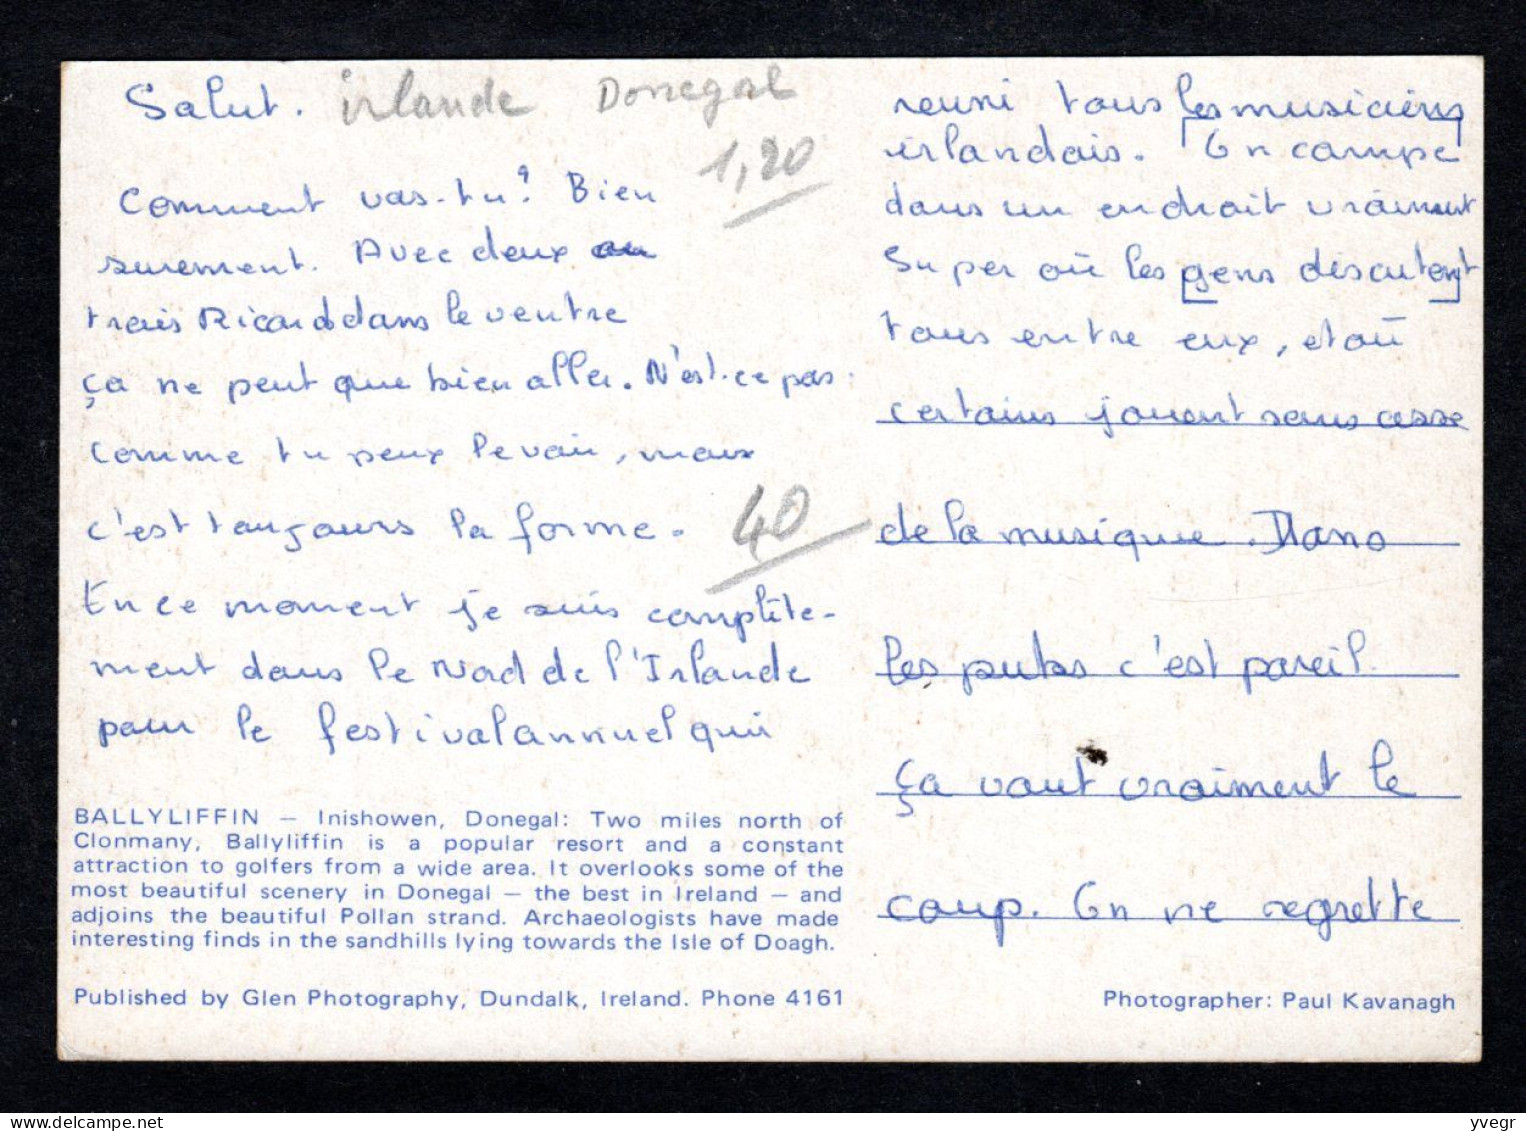 Salut. irlande Donegal
1,20
Comment vas-tu? Bien
surement. Avec deux au
trois Ricards dans le ventre
ça ne peut que bien aller. N'est-ce pas.
comme tu peux le voir, mais
c'est toujours la forme.
40
En ce moment je suis complète-
ment dans le Nord de l'Irlande
pour le festival annuel qui
BALLYLIFFIN — Inishowen, Donegal: Two miles north of
Clonmany, Ballyliffin is a popular resort and a constant
attraction to golfers from a wide area. It overlooks some of the
most beautiful scenery in Donegal — the best in Ireland — and
adjoins the beautiful Pollan strand. Archaeologists have made
interesting finds in the sandhills lying towards the Isle of Doagh.
Published by Glen Photography, Dundalk, Ireland. Phone 4161
reuni tous les musiciens
irlandais. On campe
dans un endroit vraiment
super où les gens discutent
tous entre eux, et où
certains jouent sans cesse
de la musique. Dans
les pubs c'est pareil.
ça vaut vraiment le
coup. On ne regrette
Photographer: Paul Kavanagh
www.delcampe.net
yvegr